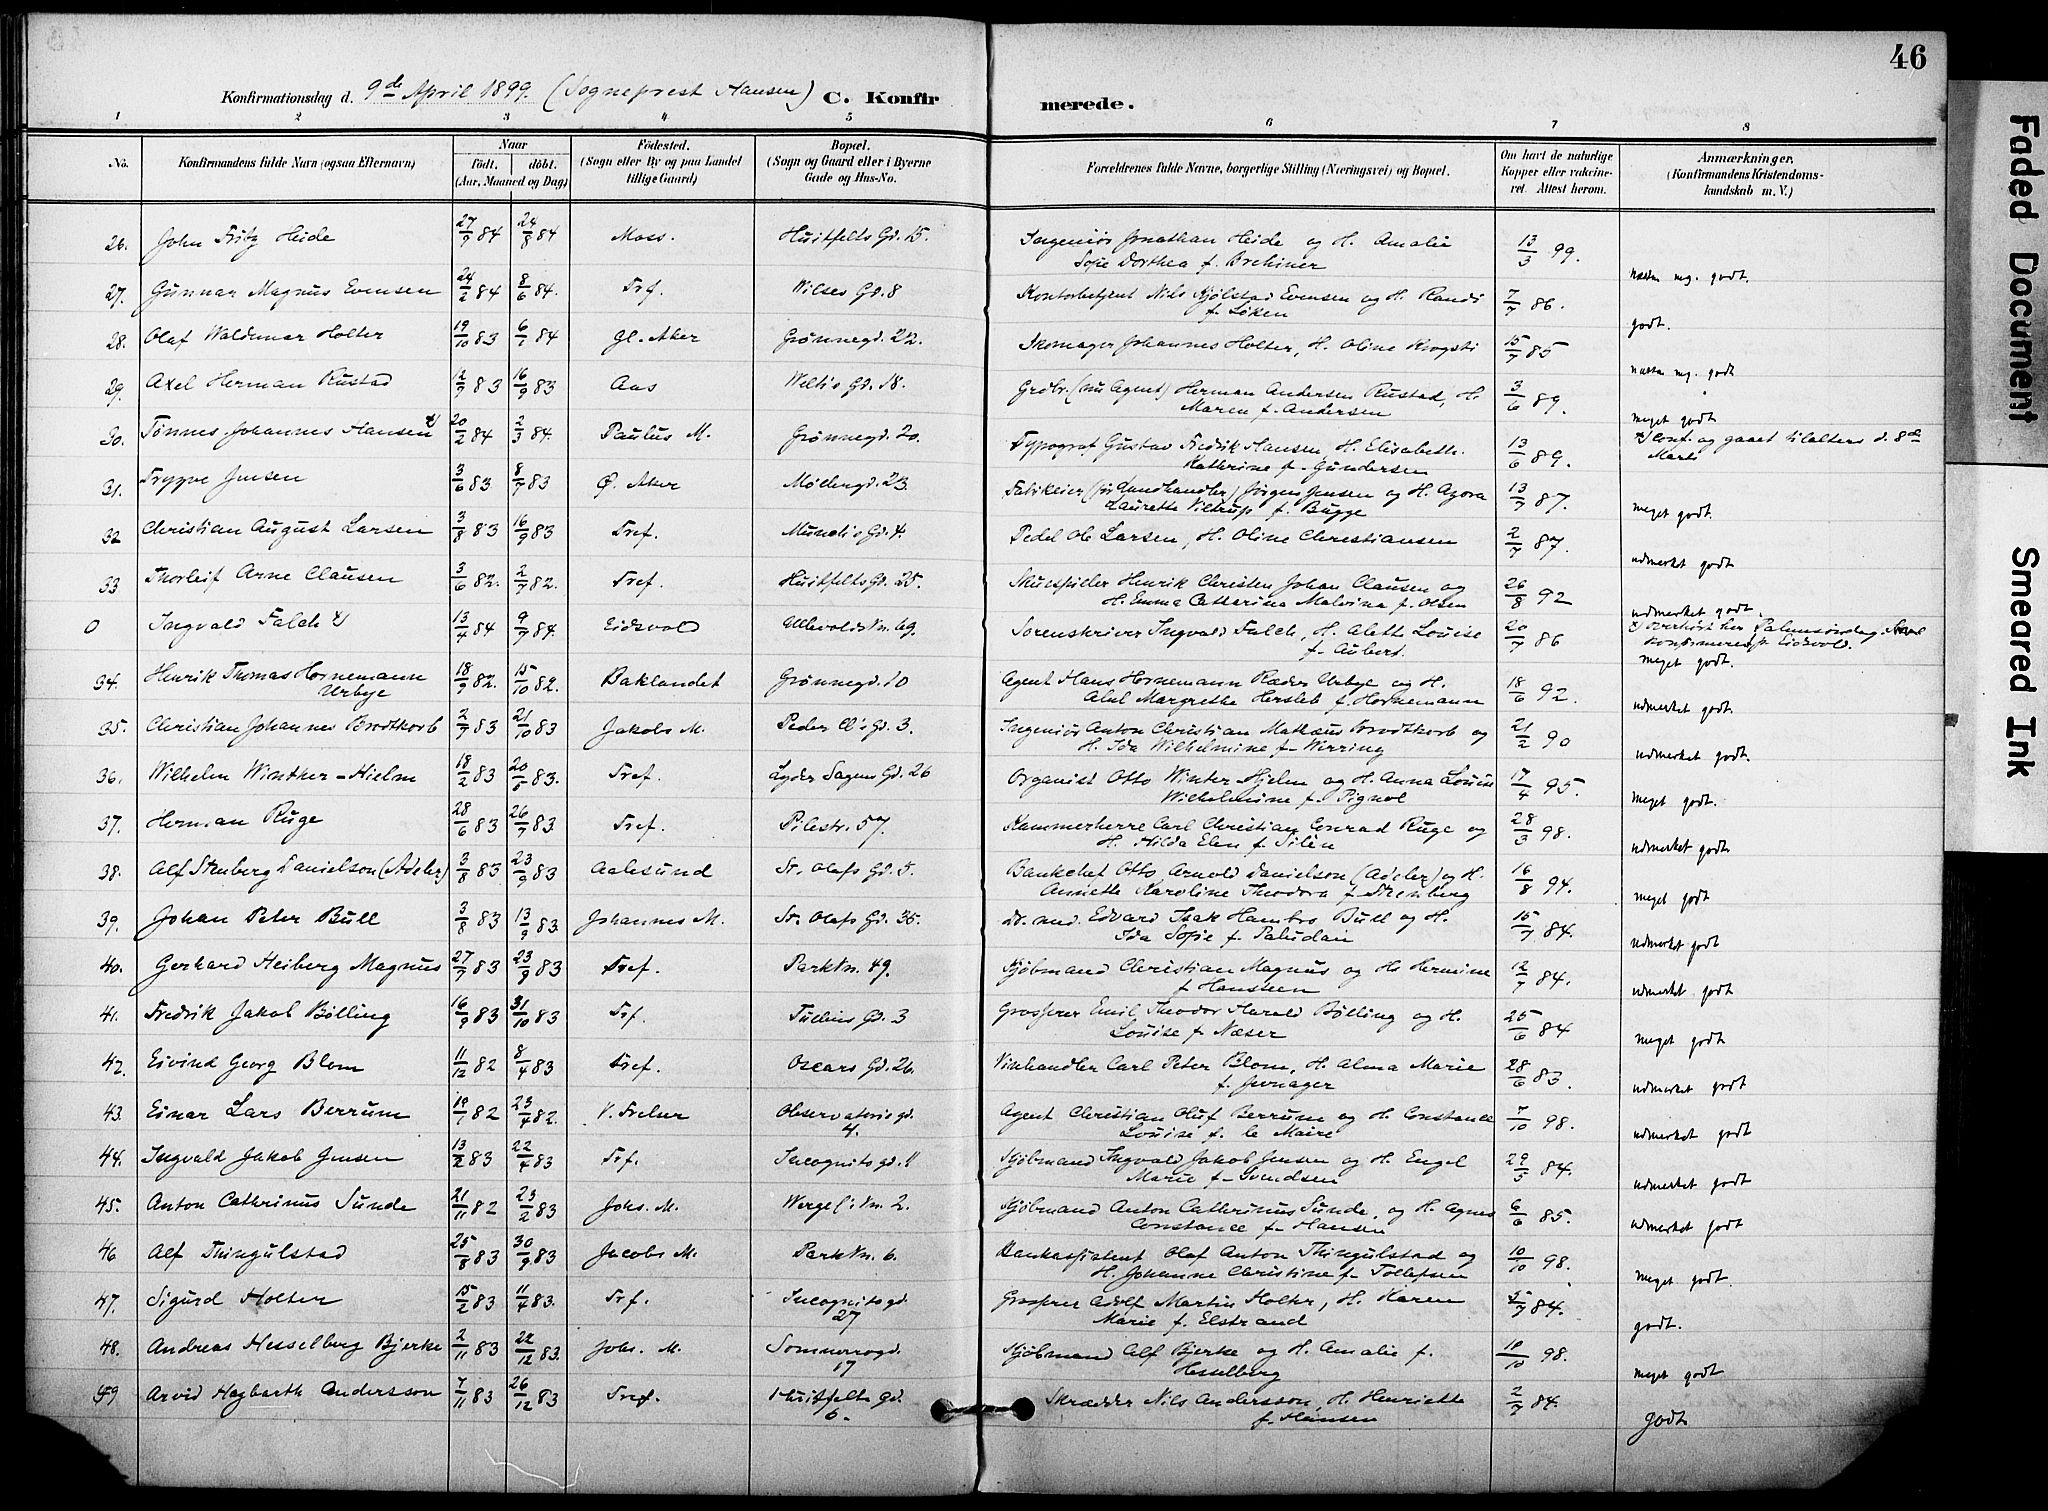 46
Konfirmationsdag d. 9de April 1899. (Sogneprest Hansen) C. Konfirmerede.
1 2 3 4 5 6 7 8
No. Konfirmandens fulde Navn (ogsaa Efternavn) Naar født. døbt. (Aar, Maaned og Dag) Fødested. (Sogn eller By og paa Landet tillige Gaard) Bopæl. (Sogn og Gaard eller i Byerne Gade og Hus-No. Forældrenes fulde Navne, borgerlige Stilling (Næringsvei) og Bopæl. Om havt de naturlige Kopper eller vakcineret. Attest herom. Anmærkninger. (Konfirmandens Kristendomskundskab m. V.)
26. John Fritz Heide 27/9 84 24/8 84 Moss. Huitfelts Gd. 15. Ingeniør Jonathan Heide og H. Amalie
Sofie Dorthea f. 13/3 99. næsten mg. godt.
27. Gunnar Magnus Evensen 24/2 84 8/6 84. Trf. Wilses Gd. 8 Kontorbetjent Nils Kjølstad Evensen og H. Randi
f. Løken 7/7 86. godt.
28. Olaf Waldemar Holter 19/10 83 6/1 84 Gl. Aker Grønnegd. 22. Skomager Johannes Holter, H. Oline Krogsti 15/7 85 næsten mg. godt
29. Axel Herman Rustad 12/7 83 16/9 83 Aas Welh's Gd. 18. Grdbr. (nu Agent) Herman Andersen Rustad, H.
Maren f. Andersen 3/6 89. meget godt
30. Tønnes Johannes Hansen x) 20/2 84 2/3 84. Paulus M. Grønnegd. 20. Typograf Gustav Fredrik Hansen, H. Elisabeth
Kathrine f. Gundersen 13/6 89. x) conf. og gaaet tilalters d. 8de
Marts
31. Trygve Jensen 3/6 83 8/7 83 Ø. Aker Møllergd. 23. Fabrikeier (før Landhandler) Jørgen Jensen og H. Agora
Laurette Viltrup f. Bugge 13/7 87. meget godt.
32 Christian August Larsen 3/8 83 16/9 83 Tref. Munch's Gd. 4. Pedel Ole Larsen, H. Oline Christiansen 2/7 87. udmerket godt
33 Thorleif Arne Clausen 3/6 82. 2/7 82. Tref. Huitfelts Gd. 25. Skuespiller Henrik Christen Johan Clausen og
H. Emma Catharina Malvina f. Olsen 26/8 92 udmerket godt.
0 Ingvald Falch x) 13/4 84 9/7 84. Eidsvold Ullevoldsvn. 69. Sorenskriver Ingvald Falch, H. Alette Louise
f. Aubert. 20/7 86 x) overhørt her Palmesøndag. Skal
konfirmeres f. Eidsvold.
meget godt.
34. Henrik Thomas Hornemann
Urbye 18/9 82. 15/10 82. Baklandet Grønnegd. 10 Agent Hans Hornemann Ræder Urbye og H.
Abel Margrethe Hersleb f. Hornemann 18/6 92. udmerket godt.
35. Christian Johannes Brodtkorb 2/7 83 21/10 83 Jakobs M. Peder Cl's Gd. 3. Ingeniør Anton Christian Mathæus Brodtkorb og
H. Ida Wilhelmine f. Wirring 21/2 90 udmerket godt.
36. Wilhelm Winther-Hjelm 18/2 83 20/5 83. Tref. Lyder Sagens Gd. 26 Organist Otto Winter-Hjelm og H. Anna Louise
Wilhelmine f. Pignol 17/4 95. meget godt.
37. Herman Ruge 28/6 83 26/7 83. Tref. Pilestr. 57. Kammerherre Carl Christian Conrad Ruge og
H. Hilda Elen f. Silén 28/3 98. udmerket godt.
38. Alf Stenberg Danielson (Adeler) 3/8 83 23/9 83 Aalesund St. Olafs Gd. 5. Bankchef Otto Arnold Danielson (Adeler) og H.
Annette Karoline Theodora f. Stenberg 16/8 94. meget godt
39. Johan Peter Bull 3/8 83 13/9 83. Johannes M. St. Olafs Gd. 35. Dr. med. Edvard Isak Hambro Bull og H.
Ida Sofie f. Paludan 15/7 84. udmerket godt
40. Gerhard Heiberg Magnus 27/7 83 23/9 83 Tref. Parkvn. 49. Kjøbmand Christian Magnus og H. Hermine
f. Hanssen 12/7 84. udmerket godt
41. Fredrik Jakob Bølling 16/9 83 31/10 83 Trf. Tullins Gd. 3 Grosserer Emil Theodor Harald Bølling og H.
Louise f. Næser 25/6 84 meget godt
42. Eivind Georg Blom 11/12 82 8/4 83 Tref. Oscars Gd. 26. Vinhandler Carl Peter Blom, H. Alma Marie
f. Jevnager 28/6 83. udmerket godt
43. Einar Lars Berrum 19/7 82 23/4 82. V. Frelser Observatoriegd.
4. Agent Christian Oluf Berrum og H. Constance
Louise f. le Maire 7/10 98. udmerket godt
44. Ingvald Jakob Jensen 13/2 83 22/4 83 Trf. Incognitogd. 11 Kjøbmand Ingvald Jakob Jensen og H. Engel
Marie f. Svendsen 29/5 84. udmerket godt
45. Anton Cathrinus Sunde 21/11 82 23/2 83 Johs. M. Wergel.vn. 2. Kjøbmand Anton Cathrinus Sunde, og H. Agnes
Constance f. Hansen 6/6 85. udmerket godt
46 Alf Thingulstad 25/8 83 30/9 83 Jacobs M. Parkvn. 6. Bankassistent Olaf Anton Thingulstad og
H. Johanne Christine f. Tollefsen 10/10 98. meget godt.
47. Sigurd Holter 15/2 83 11/4 83. Trf. Incognitogd.
27 Grosserer Adolf Martin Holter, H. Karen
Marie f. Elstrand 5/7 84. godt.
48. Andreas Hesselberg Bjerke 2/11 83 22/12 83. Johs. M. Sommerrogd.
17 Kjøbmand Alf Bjerke og H. Amalie f.
Hesselberg 10/10 98. meget godt
49 Arvid Hagbarth Andersson 7/11 83 26/12 83 Tref. Huitfelts Gd.
6. Skrædder Nils Andersson, H. Henriette
f. Hansen 2/7 84. godt
Faded Document
Smeared Ink